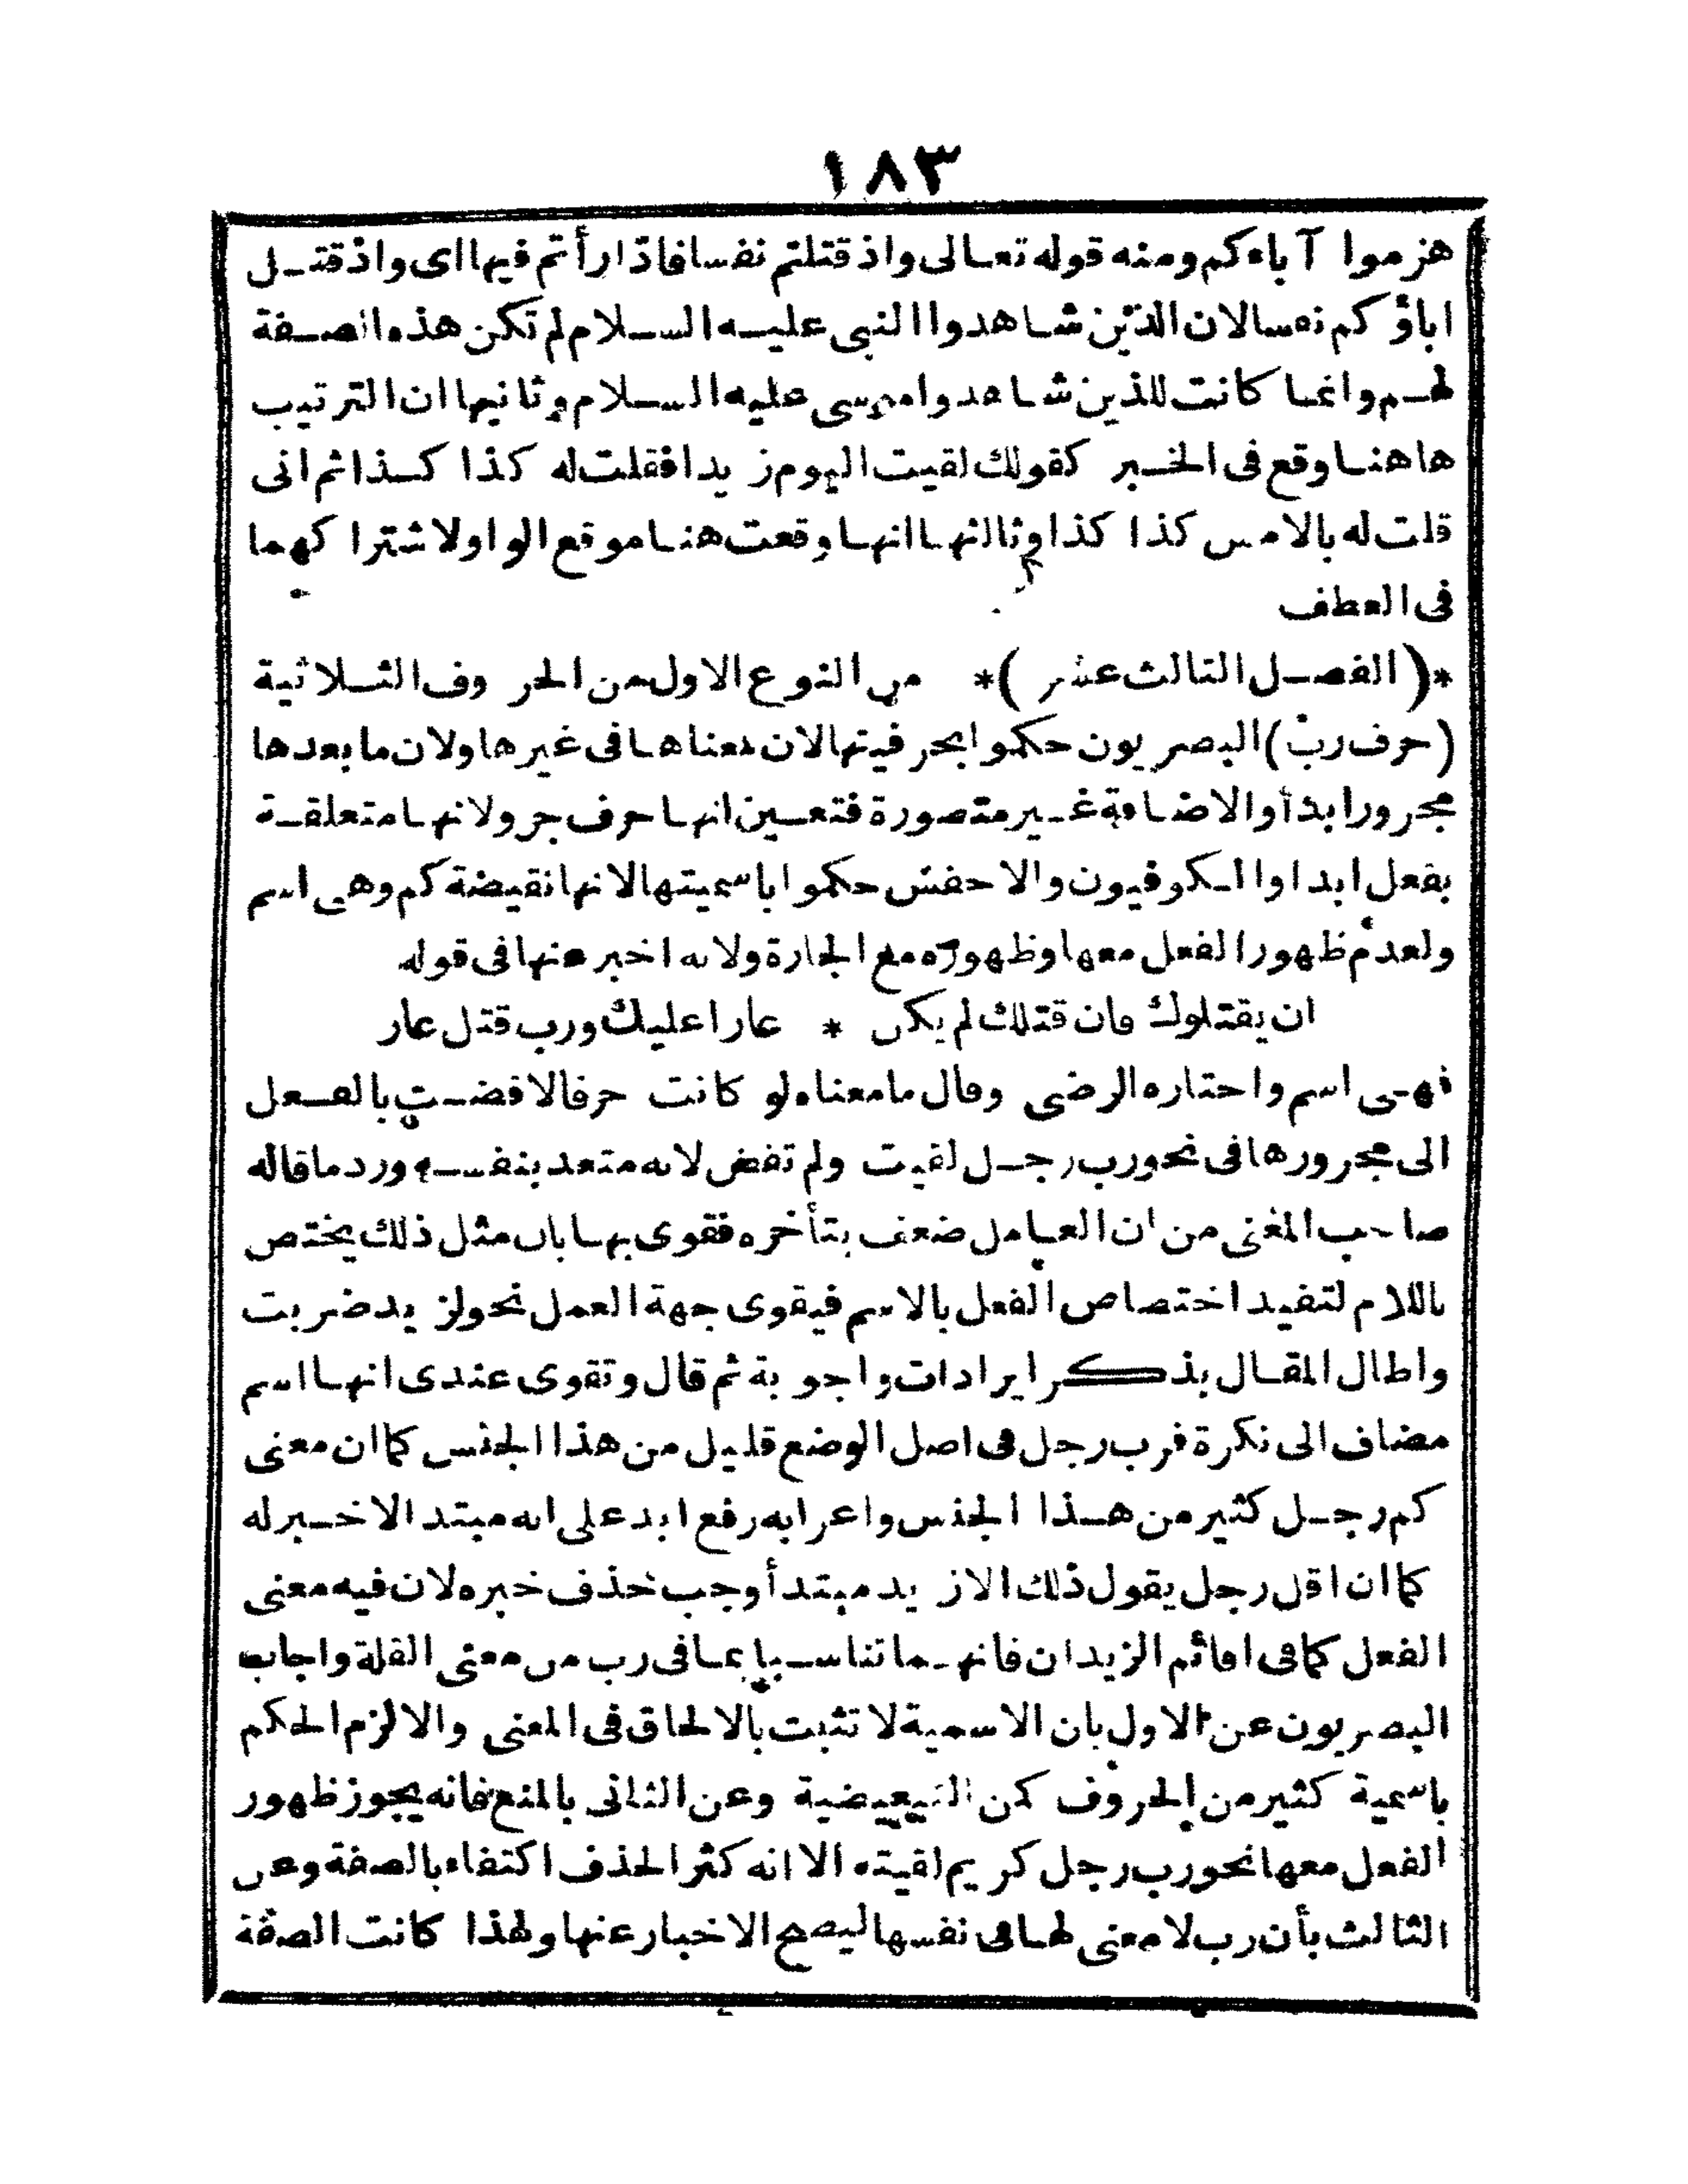 ١٨٣
هزموا آباءكم ومنه قوله تعالى واذ قتلتم نفسا فادّارأتم فيها اى واذ قتل
اباؤكم نفسا لان الذين شاهدوا النبى عليه السلام لم تكن هذه الصفة
لهم وانما كانت للذين شاهدوا موسى عليه السلام وثانيها ان الترتيب
هاهنا وقع فى الخبر كقولك لقيت اليوم زيدا فقلت له كذا كذا ثم انى
قلت له بالامس كذا كذا وثالثها انها وقعت هنا موقع الواو لاشتراكهما
فى العطف
*( الفصل الثالث عشر )* من النوع الاول من الحروف الثلاثية
(حرف رب) البصريون حكموا بحرفيتها لان معناها فى غيرها ولان ما بعدها
مجرور ابدأ والاضافة غير متصورة فتعين انها حرف جر ولانها متعلقة
بفعل ابدا والكوفيون والاخفش حكموا باسميتها لانها نقيضة كم وهى اسم
ولعدم ظهور الفعل معها وظهوره مع الجارة ولانه اخبر عنها فى قوله
ان يقتلوك فان قتلك لم يكن * عارا عليك ورب قتل عار
فهى اسم واختاره الرضى وقال ما معناه لو كانت حرفا لافضت بالفعل
الى مجرورها فى نحو رب رجل لقيت ولم تفض لانه متعد بنفسه ورد ما قاله
صاحب المغنى من ان العامل ضعف بتأخره فقوى بها بان مثل ذلك يختص
باللام لتفيد اختصاص الفعل بالاسم فيقوى جهة العمل نحو لزيد ضربت
واطال المقال بذكر ايرادات واجوبة ثم قال وتقوى عندى انها اسم
مضاف الى نكرة فرب رجل فى اصل الوضع قليل من هذا الجنس كما ان معنى
كم رجل كثير من هذا الجنس واعرابه رفع ابد على انه مبتدا لا خبر له
كما ان اقل رجل يقول ذلك الا زيد مبتدأ وجب حذف خبره لان فيه معنى
الفعل كما فى اقائم الزيدان فانهما تناسبا بما فى رب من معنى القلة واجاب
البصريون عن الاول بان الاسمية لا تثبت بالالحاق فى المعنى والا لزم الحكم
باسمية كثير من الحروف كمن التبعيضية وعن الثانى بالمنع فانه يجوز ظهور
الفعل معها نحو رب رجل كريم لقيته الا انه كثر الحذف اكتفاء بالصفة وعن
الثالث بأن رب لا معنى لها فى نفسها ليصح الاخبار عنها ولهذا كانت الصفة